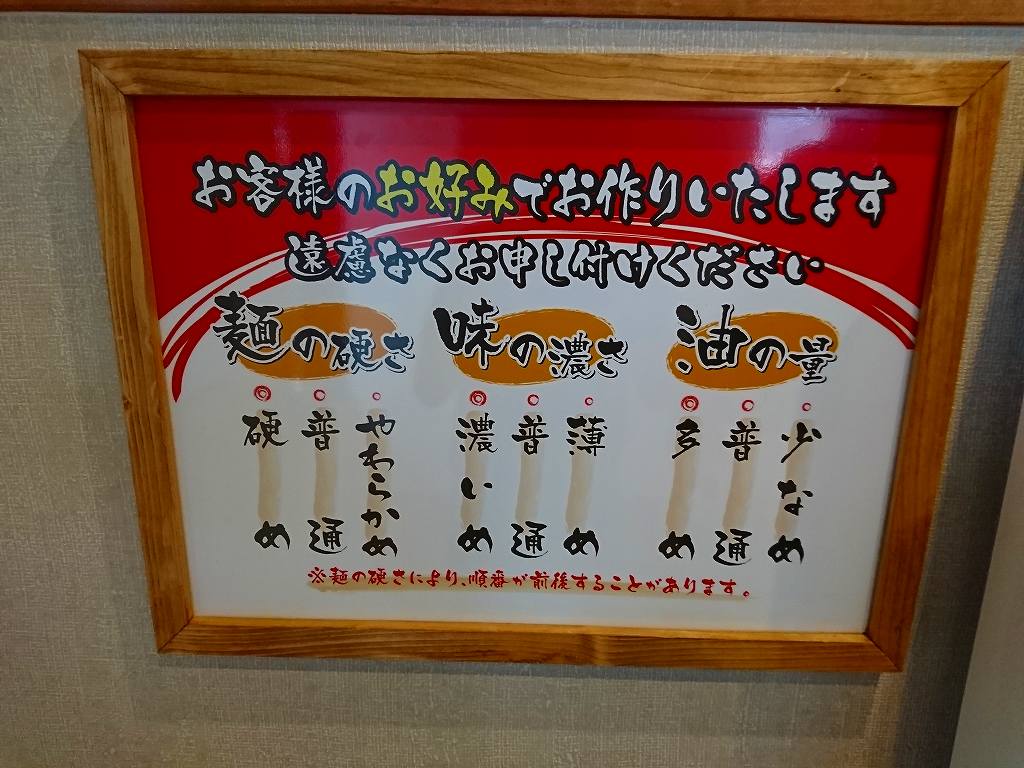 お客様のお好みでお作りいたします
遠慮なくお申し付けください
麺の硬さ
硬め
普通
やわらかめ
味の濃さ
濃いめ
普通
薄め
油の量
多め
普通
少なめ
※麺の硬さにより、順番が前後することがあります。